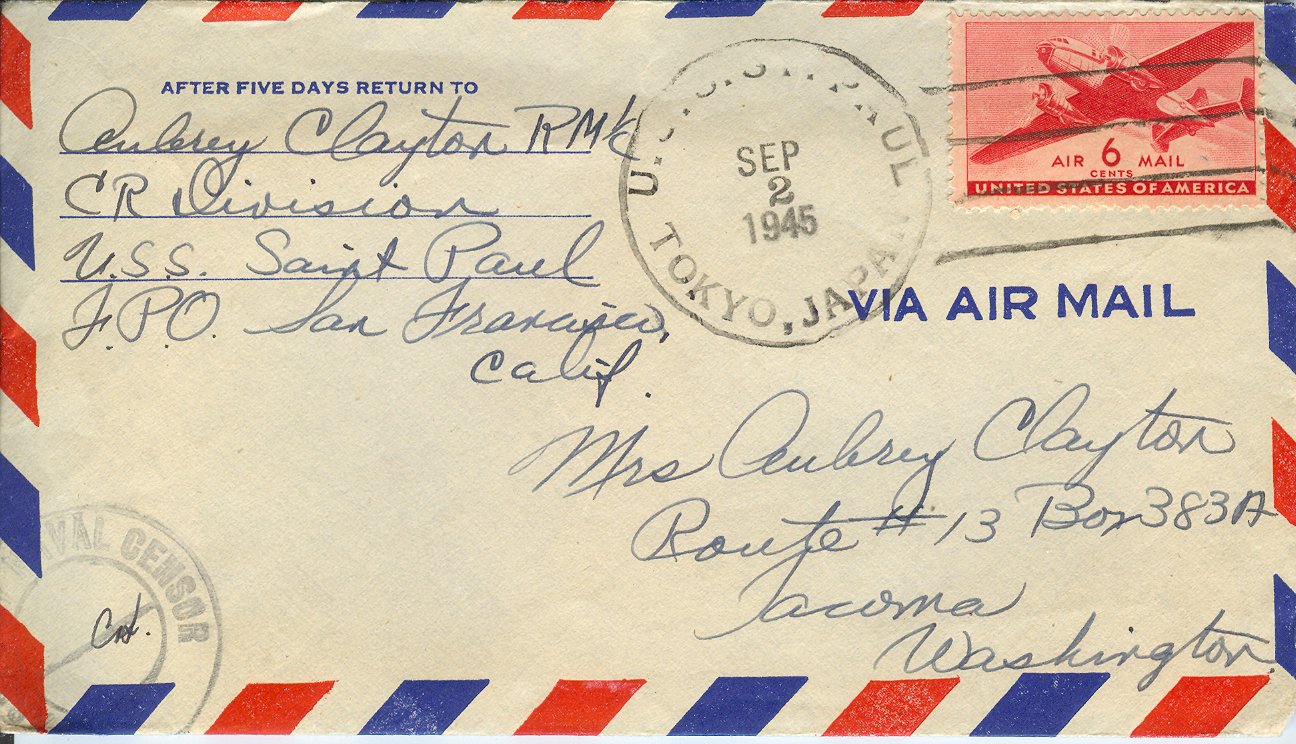 AFTER FIVE DAYS RETURN TO
Aubrey Clayton RM1/c
CR Division
U.S.S. Saint Paul
F.P.O. San Francisco,
Calif.
U.S.S. ST. PAUL
SEP
2
1945
TOKYO, JAPAN
AIR 6 MAIL
CENTS
UNITED STATES OF AMERICA
VIA AIR MAIL
Mrs Aubrey Clayton
Route # 13 Box 383A
Tacoma
Washington
NAVAL CENSOR